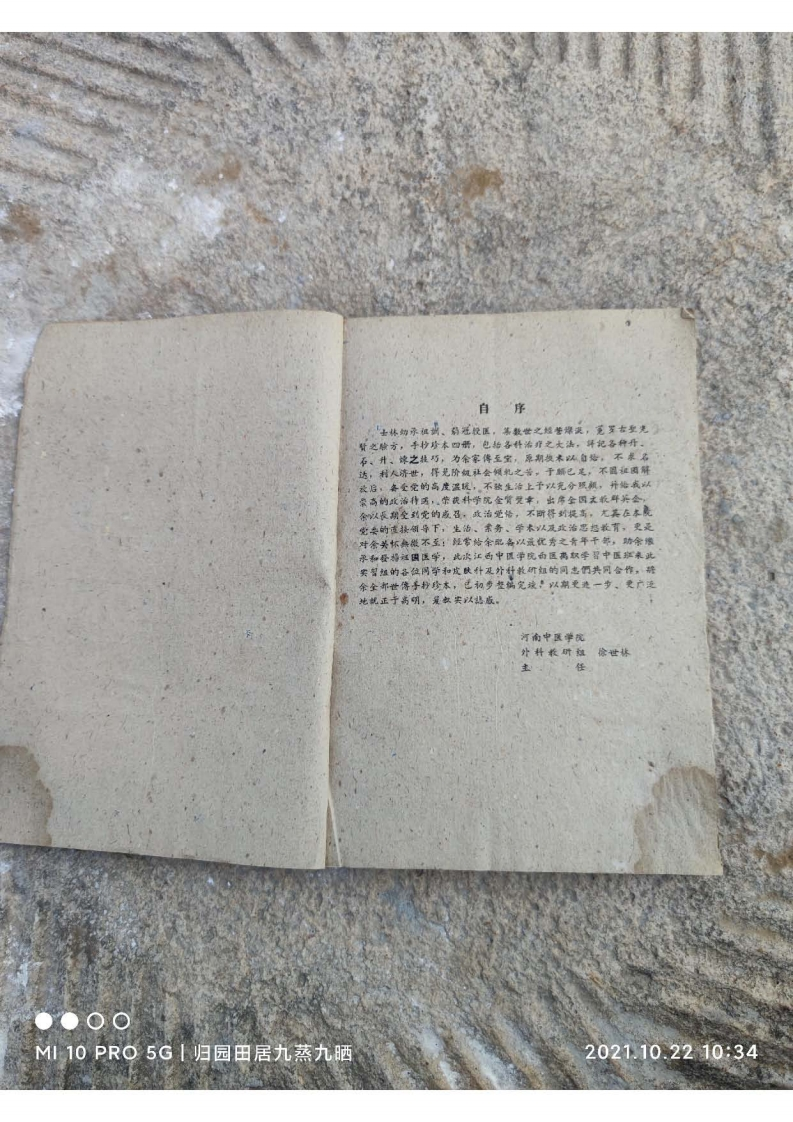 自 序
士林幼承祖训、弱冠投医,集数世之经营,蒐罗古圣先
贤之验方,手抄珍本四册,包括各科治疗之大法,详记各种丹、
石、升、炼之技巧,为余家传至宝,原期技求以自给,不求名
达,利人济世,得免阶级社会倾轧之苦。于愿已足,不图祖国解
放后,备受党的高度温暖,不独生活上予以充分照顾,并给我以
崇高的政治待遇,荣获科学院金质奖章,出席全国文教群英会,
余以长期受到党的感召,政治觉悟,不断得到提高,尤其在本院
党委的直接领导下,生活、业务、学术以及政治思想教育,更是
对余关怀无微不至;经常给余配备以最优秀之青年干部,助余继
承和发扬祖国医学,此次江西中医学院西医离职学习中医班来此
实习组的各位同学和皮肤科及外科教研组的同志们共同合作。将
余全部世传手抄珍本,已初步整编完竣,以期更进一步、更广泛
地就正于高明,爰叙实以志感。
河南中医学院
外科教研组 徐世林
主 任
MI 10 PRO 5G | 归园田居九蒸九晒
2021.10.22 10:34